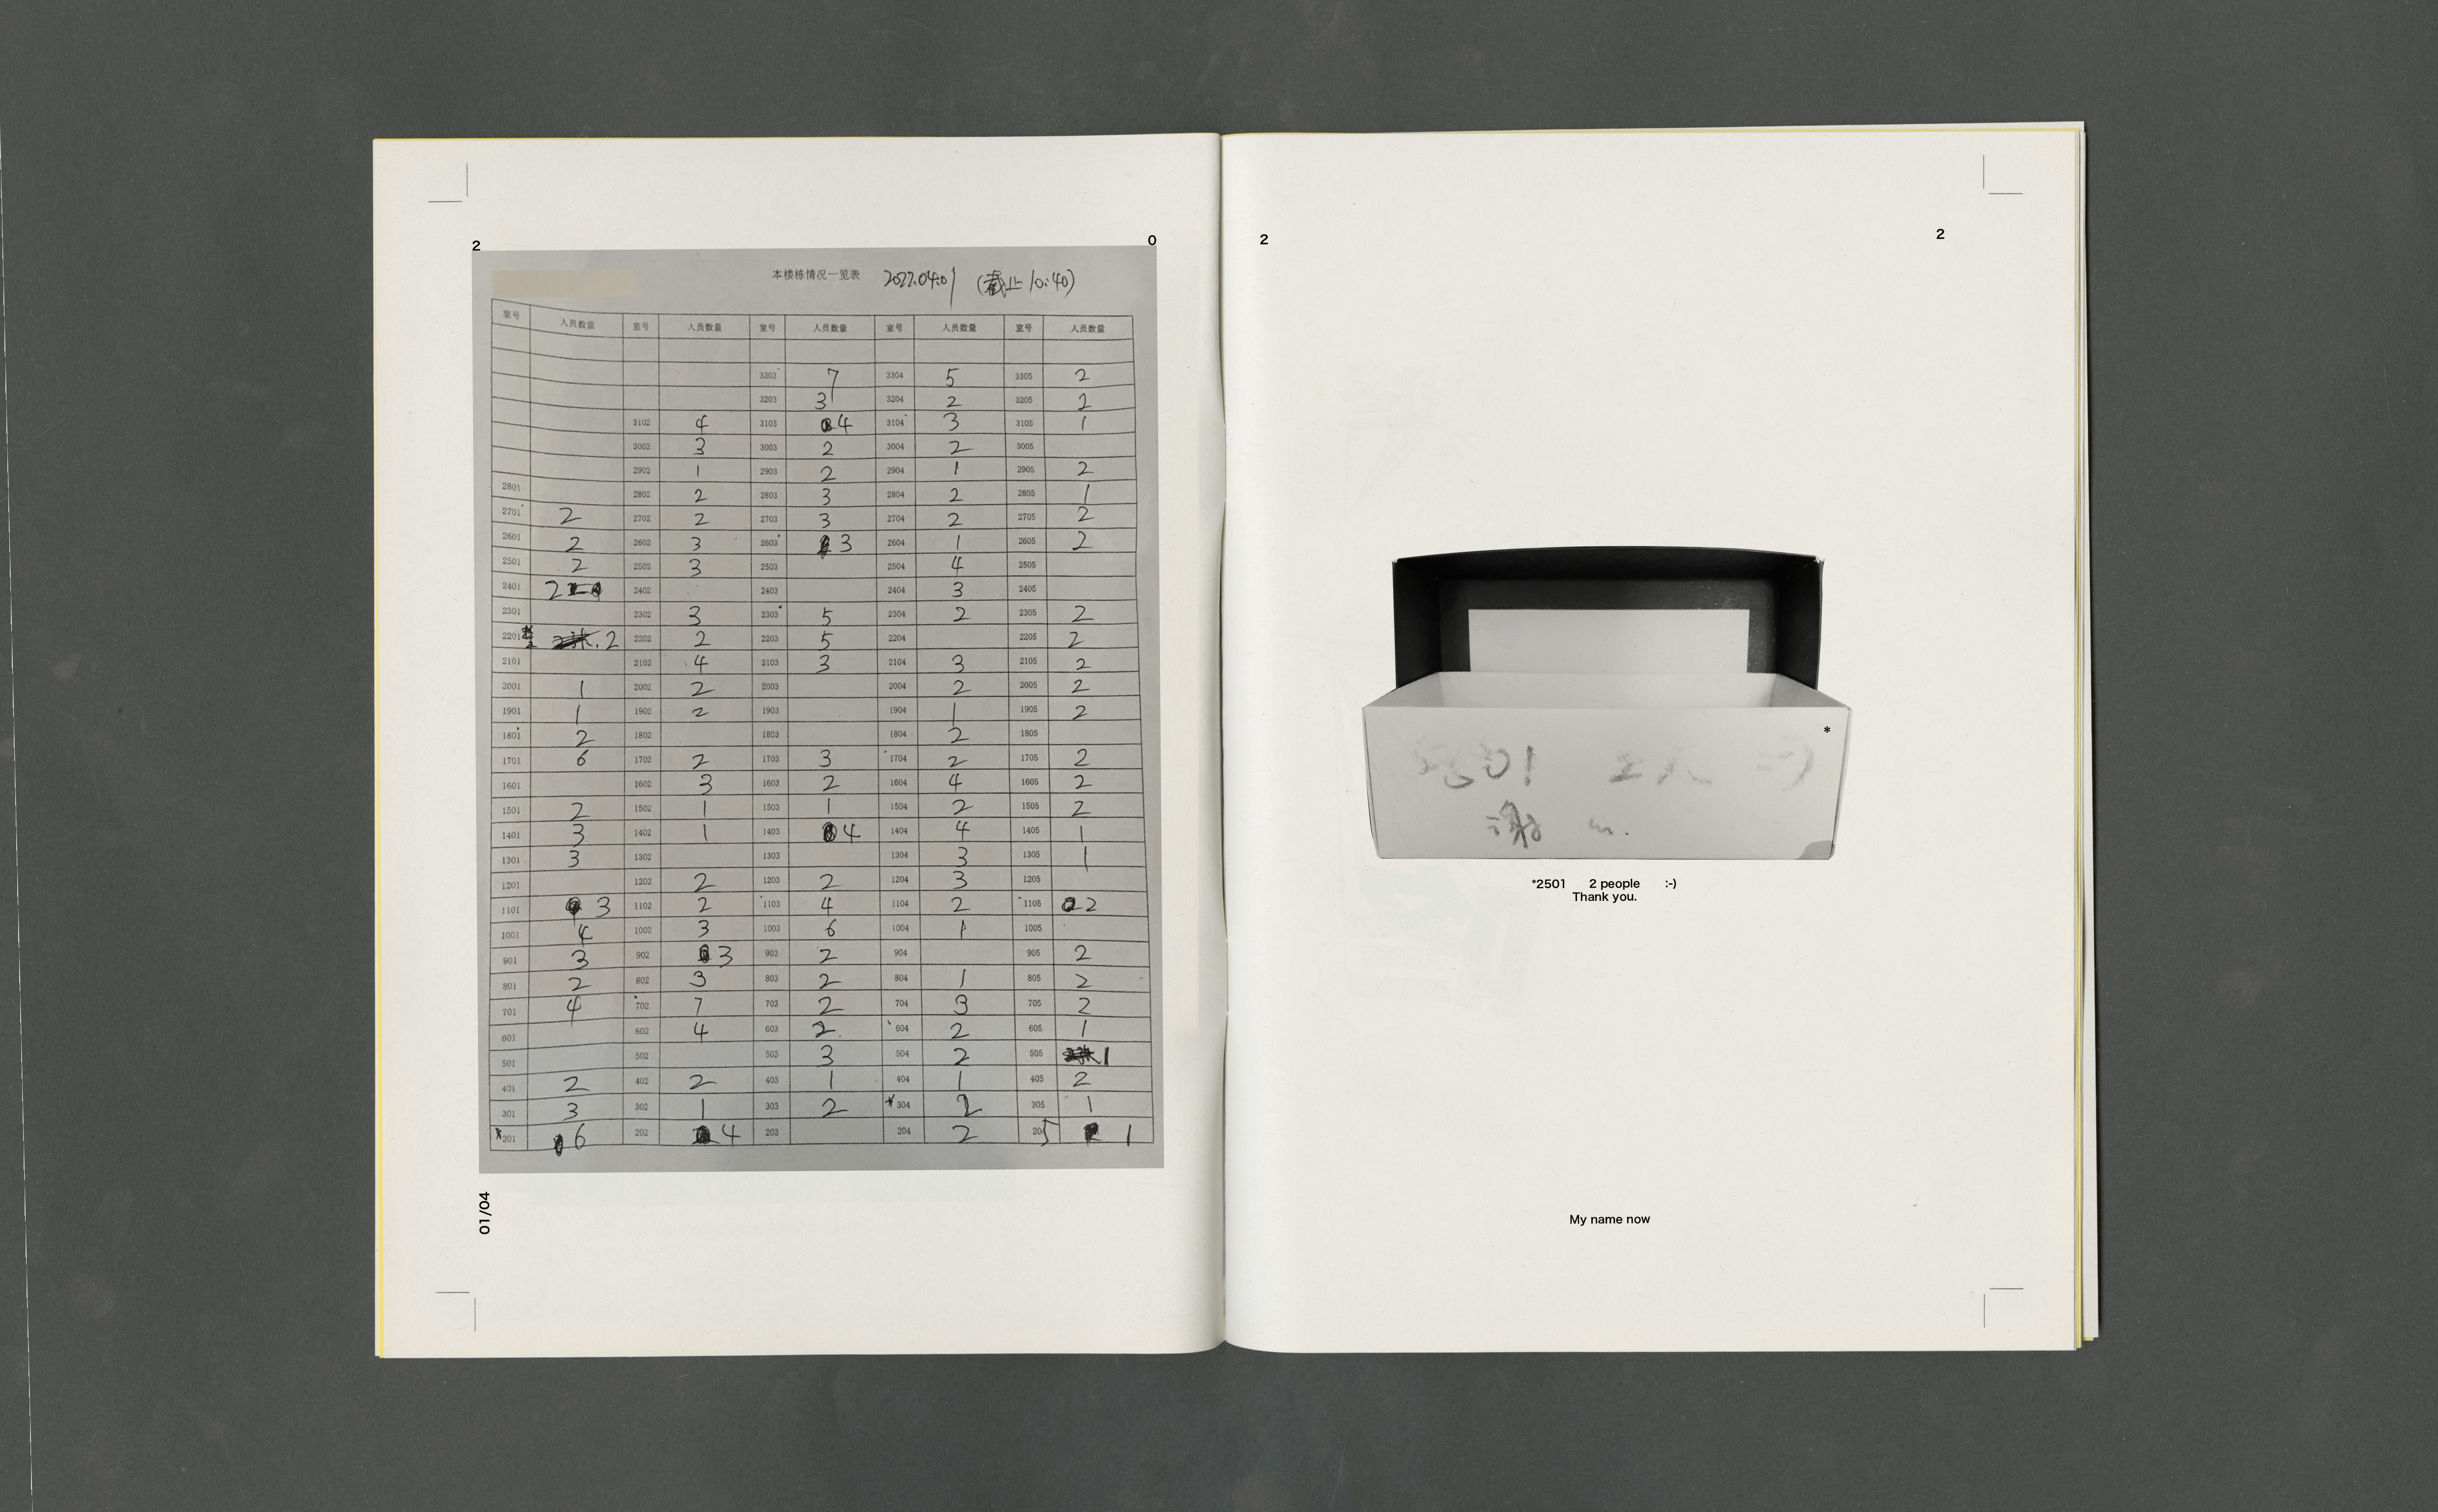 2 0 2 2
本楼栋情况一览表 2022.04.01 (截止10:40)
室号 人员数量 室号 人员数量 室号 人员数量 室号 人员数量 室号 人员数量
3303 7 3304 5 3305 2
3203 3 3204 2 3205 2
3102 4 3103 4 3104 3 3105 1
3002 3 3003 2 3004 2 3005
2902 1 2903 2 2904 1 2905 2
2801 2802 2 2803 3 2804 2 2805 1
2701 2 2702 2 2703 3 2704 2 2705 2
2601 2 2602 3 2603 3 2604 1 2605 2
2501 2 2502 3 2503 2504 4 2505
2401 2 2402 2403 2404 3 2405
2301 2302 3 2303 5 2304 2 2305 2
2201 2 2202 2 2203 5 2204 2205 2
2101 2102 4 2103 3 2104 3 2105 2
2001 1 2002 2 2003 2004 2 2005 2
1901 1 1902 2 1903 1904 1 1905 2
1801 2 1802 1803 1804 2 1805
1701 6 1702 2 1703 3 1704 2 1705 2
1601 1602 3 1603 2 1604 4 1605 2
1501 2 1502 1 1503 1 1504 2 1505 2
1401 3 1402 1 1403 4 1404 4 1405 1
1301 3 1302 1303 1304 3 1305 1
1201 1202 2 1203 2 1204 3 1205
1101 3 1102 2 1103 4 1104 2 1105 2
1001 4 1002 3 1003 6 1004 1 1005
901 3 902 3 903 2 904 905 2
801 2 802 3 803 2 804 1 805 2
701 4 702 7 703 2 704 3 705 2
601 602 4 603 2 604 2 605 1
501 502 503 3 504 2 505 1
401 2 402 2 403 1 404 1 405 2
301 3 302 1 303 2 304 2 305 1
201 6 202 4 203 204 2 205 1
01/04
*
*2501 2 people :-)
Thank you.
My name now